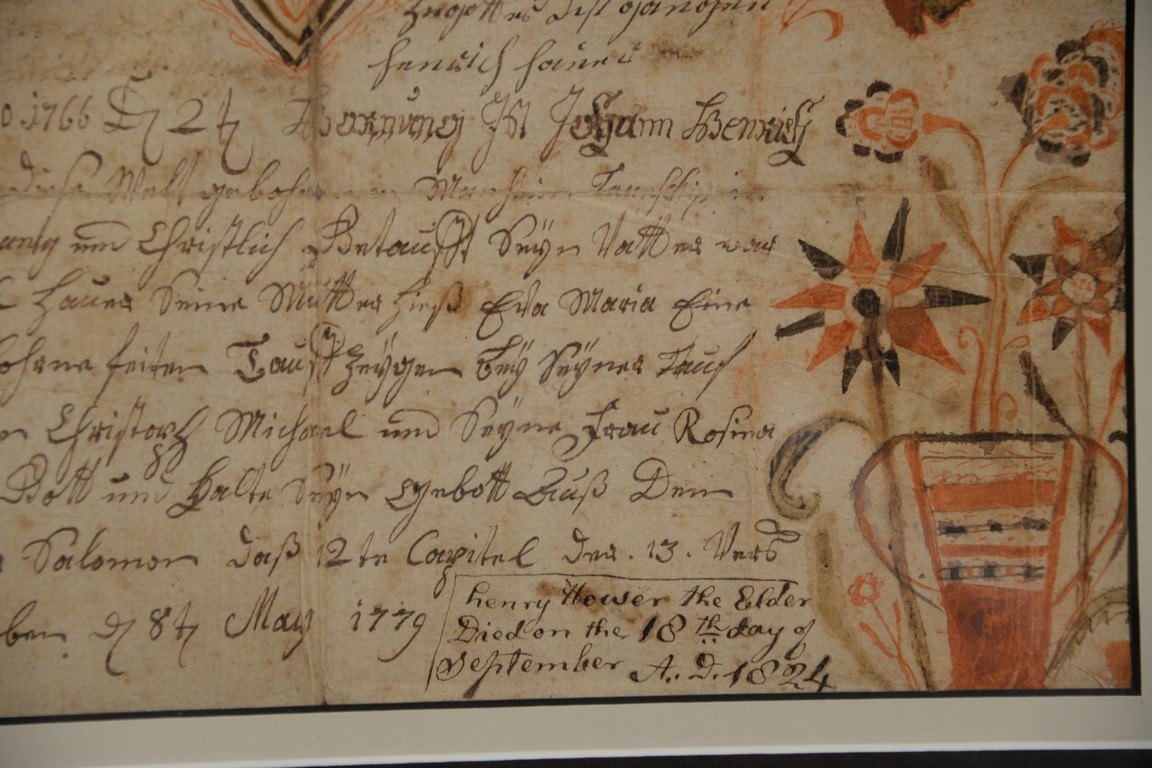 henrich haues
1766 24 Hornung Ist Johann Henrich
diese Welt gebohren in Manheim Taunschip in
und Christlich Getaufft Seyn Vatter war
Haues Seine Mutter hieß Eva Maria Eine
bohrne feiten Tauff Zeygen bey Seyner Tauf
Christoph Michael und Seyne Frau Rosina
Gott und Halte Seyn Gebott Auß Dem
Salomon daß 12te Capitel der . 13 . Vers
ben 8t May 1779
Henry Hower the Elder
Died on the 18th day of
September A. D. 1824